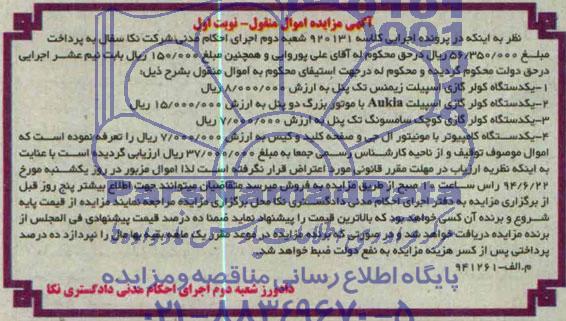 آگهی مزایده اموال منقول- نوبت اول
نظر به اینکه در پرونده اجرایی کلاسه ۹۲۰۱۳۱ شعبه دوم اجرای احکام مدنی شرکت نکا سفال به پرداخت
مبلغ ۵۶/۳۵۰/۰۰۰ ریال درحق محکوم له آقای علی پوروایی و همچنین مبلغ ۱۵۰/۰۰۰ ریال بابت نیم عشر اجرایی
درحق دولت محکوم گردیده و محکوم له درجهت استیفای محکوم به اموال منقول بشرح ذیل:
۱-یکدستگاه کولر گازی اسپیلت زیمنس تک پنل به ارزش ۸/۰۰۰/۰۰۰ ریال
۲-یکدستگاه کولر گازی اسپیلت Aukia با موتور بزرگ دو پنل به ارزش ۱۵/۰۰۰/۰۰۰ ریال
۳-یکدستگاه کولر گازی کوچک سامسونگ تک پنل به ارزش ۷/۰۰۰/۰۰۰ ریال
۴-یکدستگاه کامپیوتر با مونیتور ال جی و صفحه کلید و کیس به ارزش ۷/۰۰۰/۰۰۰ ریال را تعرفه نموده است که
اموال موصوف توقیف و از ناحیه کارشناس رسمی جمعا به مبلغ ۳۷/۰۰۰/۰۰۰ ریال ارزیابی گردیده است با عنایت
به اینکه نظریه ارزیاب در مهلت مقرر قانونی مورد اعتراض قرار نگرفته است لذا اموال مزبور در روز یکشنبه مورخ
۹۴/۶/۲۲ راس ساعت ۱۰ صبح از طریق مزایده به فروش میرسد متقاضیان میتوانند جهت اطلاع بیشتر پنج روز قبل
از برگزاری مزایده به دفتر اجرای احکام مدنی دادگستری نکا محل برگزاری مزایده مراجعه نمایند مزایده از قیمت پایه
شروع و برنده آن کسی خواهد بود که بالاترین قیمت را پیشنهاد نماید ضمنا ده درصد قیمت پیشنهادی فی المجلس از
برنده مزایده دریافت خواهد شد و در صورتی که برنده مزایده در موعد مقرر یک ماهه بقیه بهاء مال را نپردازد ده درصد
پرداختی پس از کسر هزینه مزایده به نفع دولت ضبط خواهد شد.
م.الف-۹۴۱۲۶۱
دادورز شعبه دوم اجرای احکام مدنی دادگستری نکا
پایگاه اطلاع رسانی مناقصه و مزایده
۰۲۱-۸۸۳۴۹۶۷۰-۵